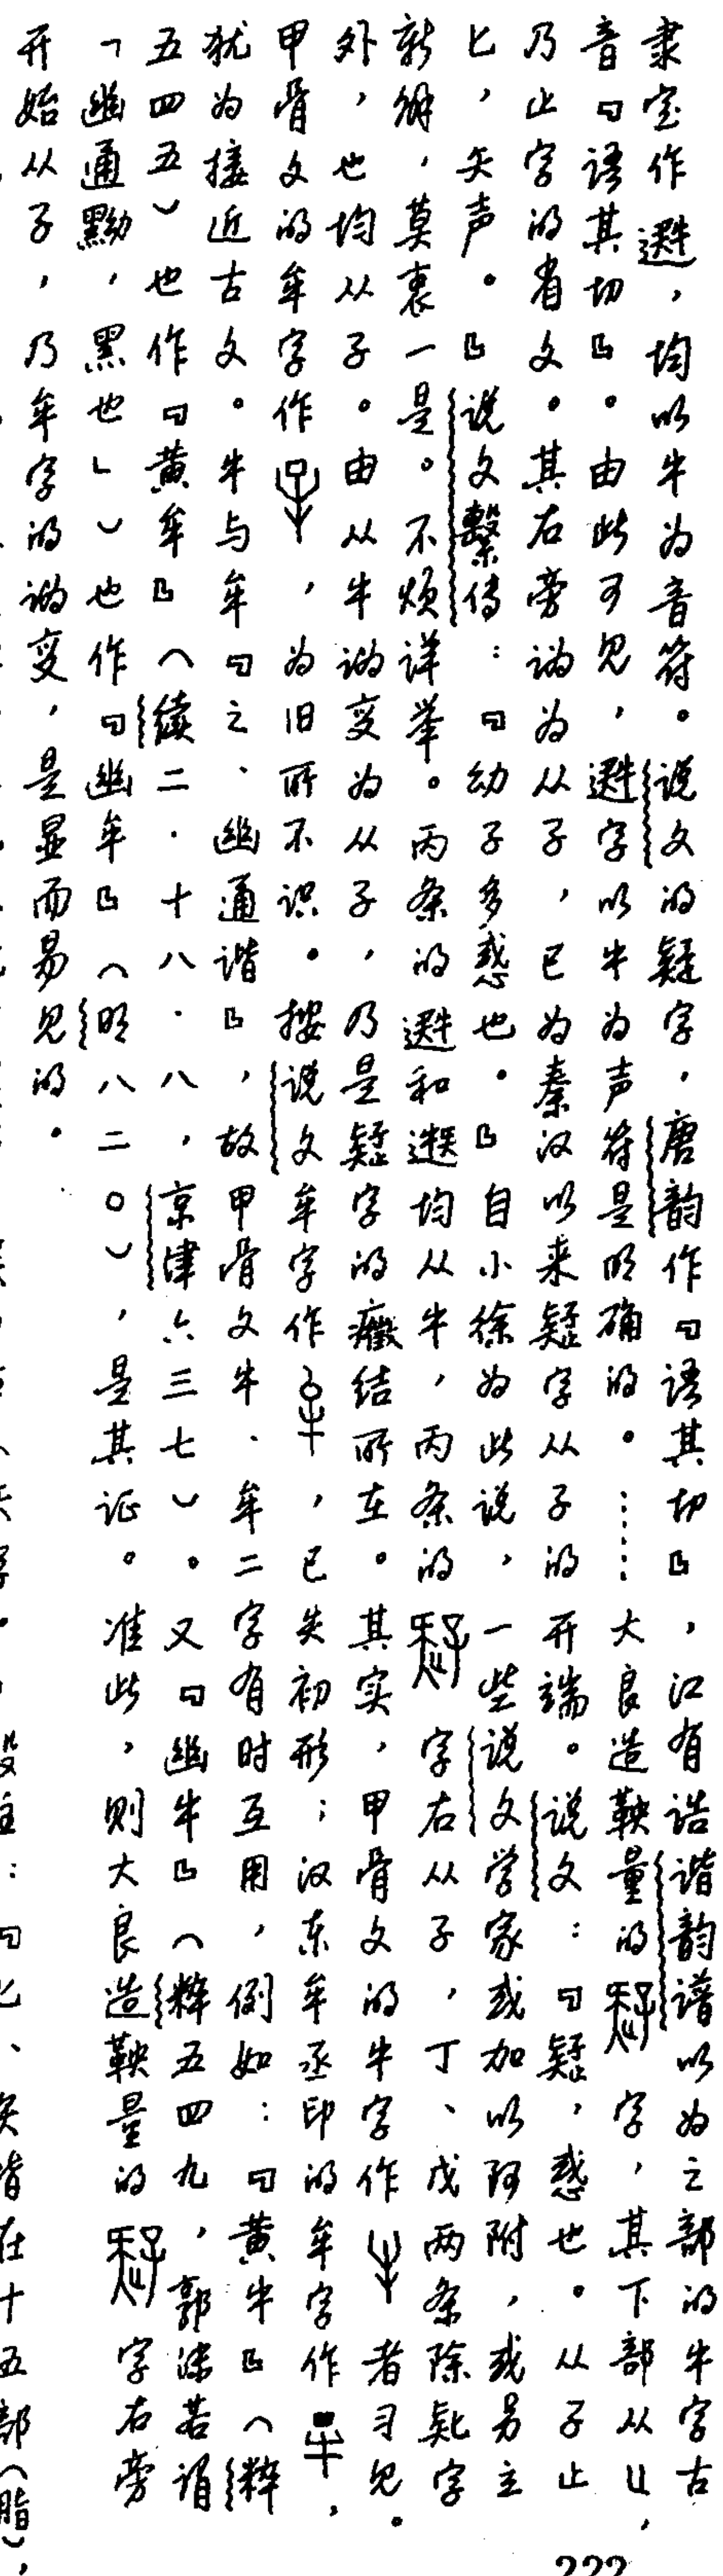 隶定作𨘢，均以牛为音符。说文的疑字，唐韵作『语其切』，江有诰谐韵谱以为之部的牛字古
音『语其切』。由此可见，字以牛为声符是明确的。……大良造鞅量的字，其下部从凵，
乃止字的省文。其右旁讹为从子，已为秦汉以来疑字从子的开端。说文：『疑，惑也。从子止
匕，矢声。』说文繫传：『幼子多惑也。』自小徐为此说，一些说文学家或加以阿附，或另立
新解，莫衷一是。不烦详举。丙条的和均从牛，丙条的字右从子，丁、戊两条除字
外，也均从子。由从牛讹变为从子，乃是疑字的癥结所在。其实，甲骨文的牛字作者习见。
甲骨文的牟字作，为旧所不识。按说文牟字作，已失初形；汉东牟丞印的牟字作，
犹为接近古文。牛与牟『之、幽通谐』，故甲骨文牛、牟二字有时互用，例如：『黄牛』（粹
五四五）也作『黄牟』（续二·十八·八，京津六三七）。又『幽牛』（粹五四九，郭沫若谓
「幽通黝，黑也」）也作『幽牟』（明八二〇），是其证。准此，则大良造鞅量的字右旁
开始从子，乃牟字的讹变，是显而易见的。
222